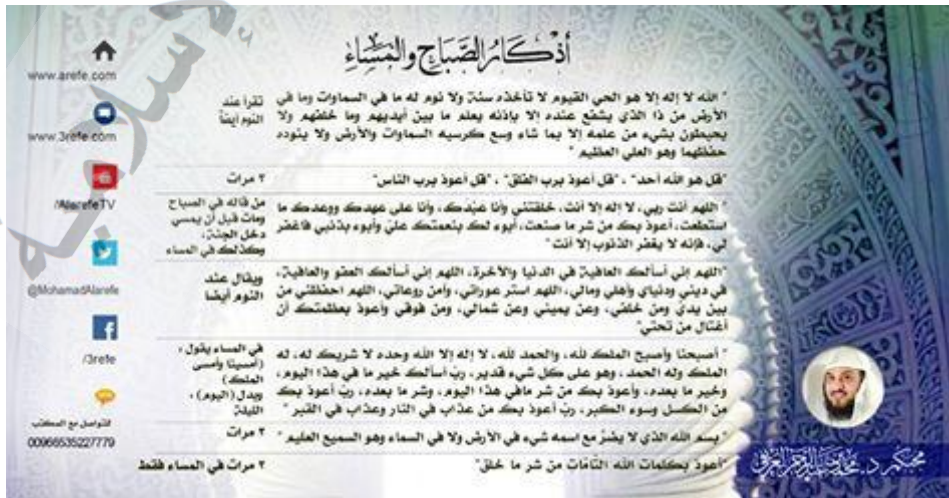 أذكار الصباح والمساء
" الله لا إله إلا هو الحي القيوم لا تأخذه سنة ولا نوم له ما في السماوات وما في
الأرض من ذا الذي يشفع عنده إلا بإذنه يعلم ما بين أيديهم وما خلفهم ولا
يحيطون بشيء من علمه إلا بما شاء وسع كرسيه السماوات والأرض ولا ينوده
حفظهما وهو العلي العظيم "
تقرأ عند
النوم أيضاً
"قل هو الله أحد" ، "قل أعوذ برب الفلق" ، "قل أعوذ برب الناس"
٣ مرات
" اللهم أنت ربي، لا إله إلا أنت، خلقتني وأنا عبدك، وأنا على عهدك ووعدك ما
استطعت، أعوذ بك من شر ما صنعت، أبوء لك بنعمتك علي وأبوء بذنبي فاغفر
لي، فإنه لا يغفر الذنوب إلا أنت"
من قاله في الصباح
ومات قبل أن يمسي
دخل الجنة،
وكذلك في المساء
"اللهم إني أسألك العافية في الدنيا والآخرة، اللهم إني أسألك العفو والعافية،
في ديني ودنياي وأهلي ومالي، اللهم استر عوراتي، وآمن روعاتي، اللهم احفظني من
بين يدي ومن خلفي، وعن يميني وعن شمالي، ومن فوقي وأعوذ بعظمتك أن
أغتال من تحتي"
ويقال عند
النوم أيضا
" أصبحنا وأصبح الملك لله، والحمد لله، لا إله إلا الله وحده لا شريك له، له
الملك وله الحمد، وهو على كل شيء قدير، رب أسألك خير ما في هذا اليوم،
وخير ما بعده، وأعوذ بك من شر مافي هذا اليوم، وشر ما بعده، رب أعوذ بك
من الكسل وسوء الكبر، رب أعوذ بك من عذاب في النار وعذاب في القبر "
في المساء يقول :
(أمسينا وأمسى
الملك)
وبدل (اليوم) ،
الليلة
" بسم الله الذي لا يضر مع اسمه شيء في الأرض ولا في السماء وهو السميع العليم "
٣ مرات
"أعوذ بكلمات الله التامات من شر ما خلق"
٣ مرات في المساء فقط
www.arefe.com
www.3refe.com
/AlarefeTV
@MohamadAlarefe
/3refe
للتواصل مع المكتب
00966535227779